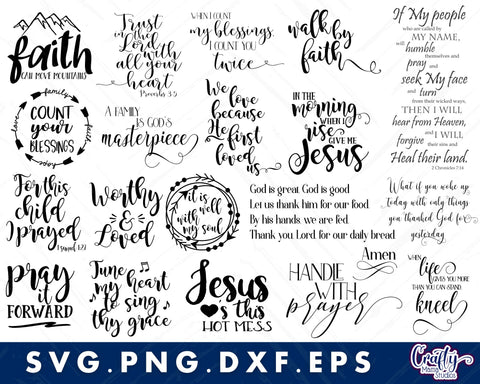 faith
CAN MOVE MOUNTAINS
Trust
in the
Lord
with
all your
heart
Proverbs 3:5
WHEN I COUNT
my blessings,
I COUNT YOU
twice
walk by
faith
If My people
who are called by
MY NAME,
will humble
themselves and
pray and
seek My face
and turn
from their wicked ways,
THEN I WILL
hear from Heaven,
and I WILL
forgive
their sin and
Heal their land.
2 Chronicles 7:14
family
COUNT
your
BLESSINGS
love
faith
hope
A FAMILY
IS GOD'S
masterpiece
We love
because
He
first
loved
us
IN THE
morning
WHEN I
rise
GIVE ME
Jesus
For this
child
I prayed
1 Samuel 1:27
Worthy
&
Loved
it is
well
with
my soul
God is great God is good
Let us thank him for our food.
By his hands we are fed.
Thank you Lord for our daily bread
Amen
What if you woke up
today with only things
you thanked God for
yesterday
pray
it
FORWARD
Tune
my heart
to sing
thy grace
Jesus
's this
HOT MESS
HANDLE
WITH
prayer
WHEN
life
GIVES YOU MORE
THAN YOU CAN STAND
kneel
SVG.PNG.DXF.EPS
Crafty
Mama
Studios